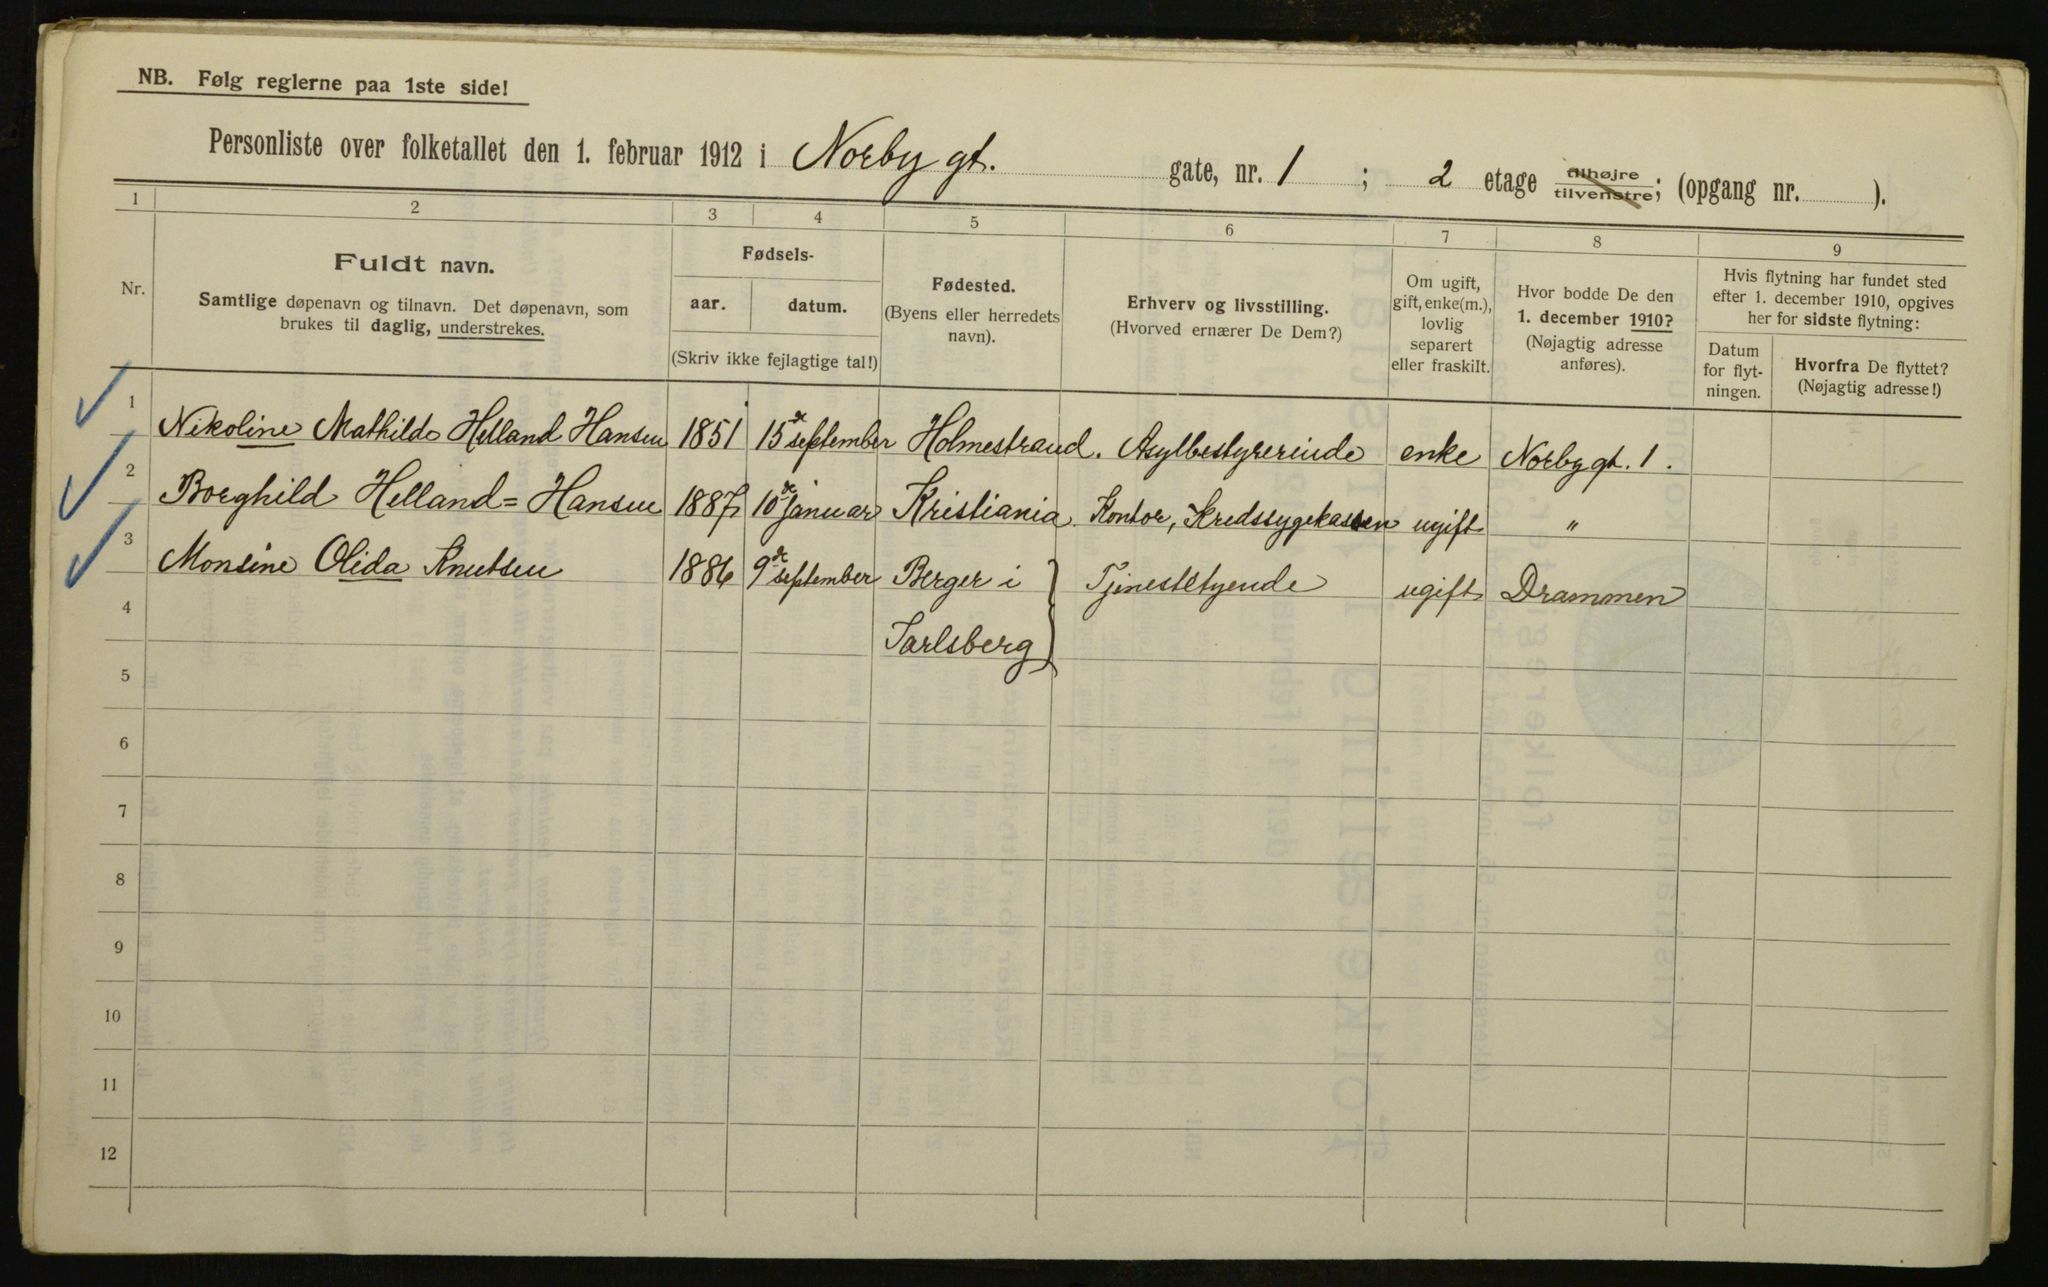 NB. Følg reglerne paa 1ste side!
Personliste over folketallet den 1. februar 1912 i Norby gt. gate, nr. 1 ; 2 etage tilhøjre tilvenstre; (opgang nr. ).
1 2 3 4 5 6 7 8 9
Nr.
Fuldt navn.
Samtlige døpenavn og tilnavn. Det døpenavn, som
brukes til daglig, understrekes.
Fødsels-
aar. datum.
(Skriv ikke fejlagtige tal!)
Fødested.
(Byens eller herredets
navn).
Erhverv og livsstilling.
(Hvorved ernærer De Dem?)
Om ugift,
gift, enke(m.),
lovlig
separert
eller fraskilt.
Hvor bodde De den
1. december 1910?
(Nøjagtig adresse
anføres).
Hvis flytning har fundet sted
efter 1. december 1910, opgives
her for sidste flytning:
Datum
for flyt-
ningen.
Hvorfra De flyttet?
(Nøjagtig adresse!)
1 Nikoline Mathilde Helland Hansen 1851 15de september Holmestrand. Asylbestyrerinde enke Norby gt. 1.
2 Borghild Helland=Hansen 1887 10de januar Kristiania Kontor, Kredssygekassen ugift "
3 Monsine Olida Knutsen 1886 9de september Berger i } Tjenestetyende ugift Drammen
4 Jarlsberg
5
6
7
8
9
10
11
12